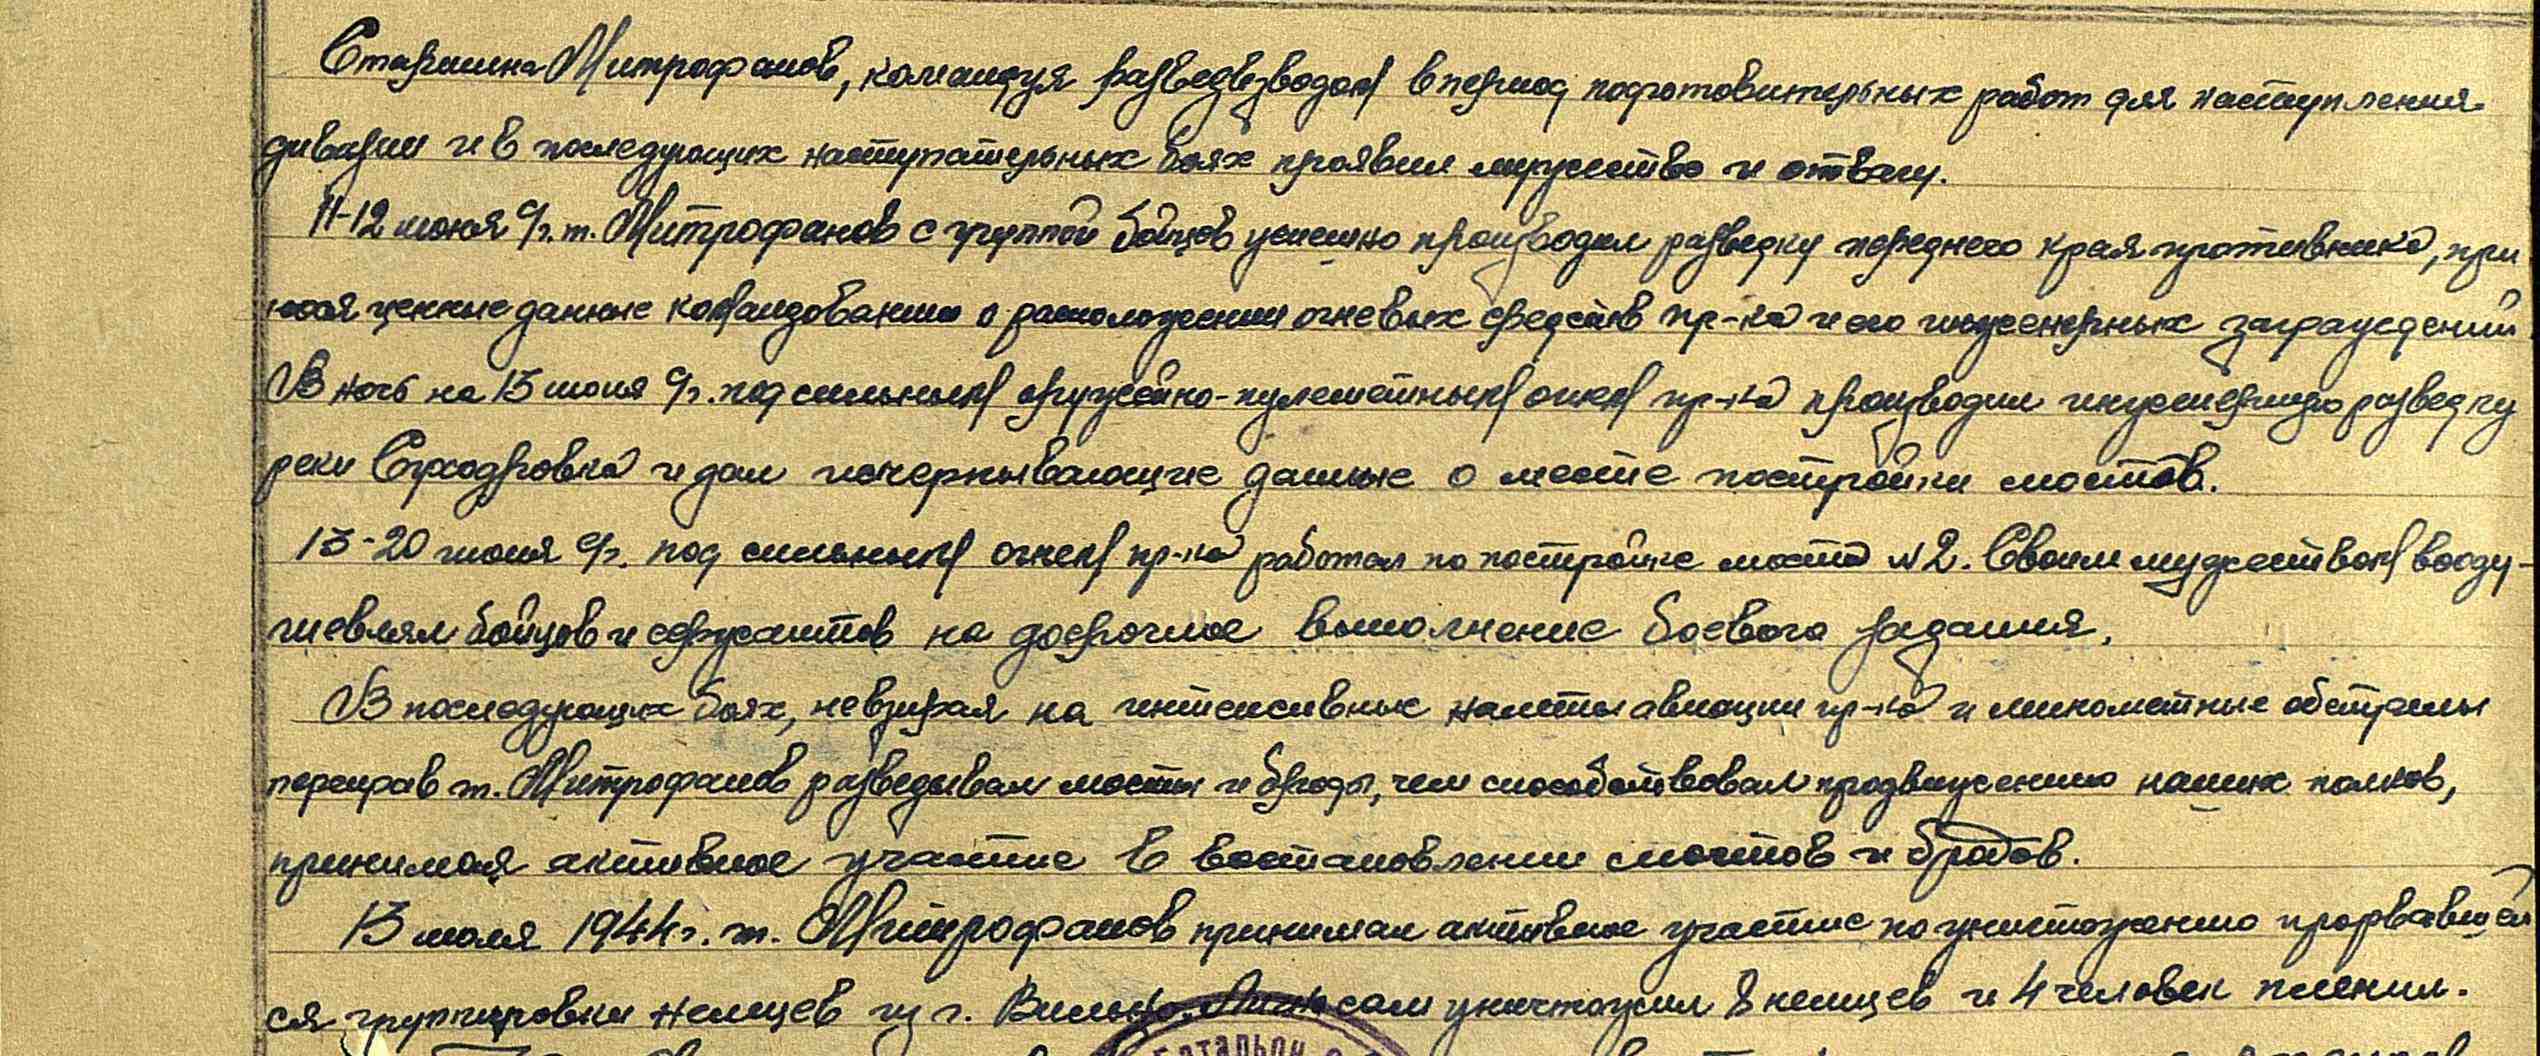 Старшина Митрофанов, командуя разведвзводом в период подготовительных работ для наступления
дивизии и в последующих наступательных боях проявил мужество и отвагу.
11-12 июня с/г. т. Митрофанов с группой бойцов успешно производил разведку переднего края противника, при
нося ценные данные командованию о расположении огневых средств пр-ка и его инженерных заграждений.
В ночь на 13 июня с/г. под сильным оружейно-пулеметным огнем пр-ка производил инженерную разведку
реки Суходровка и дал исчерпывающие данные о месте постройки мостов.
13-20 июня с/г. под сильным огнем пр-ка работал по постройке моста №2. Своим мужеством вооду-
шевлял бойцов и сержантов на досрочное выполнение боевого задания.
В последующих боях, невзирая на интенсивные налеты авиации пр-ка и минометные обстрелы
переправ т. Митрофанов разведывал мосты и броды, чем способствовал продвижению наших полков,
принимая активное участие в востановлении мостов и бродов.
13 июля 1944 г. т. Митрофанов принимал активное участие по уничтожению прорвавшей
ся группировки немцев из г. Вильно. Лично сам уничтожил 8 немцев и 4 человек пленил.
батальон